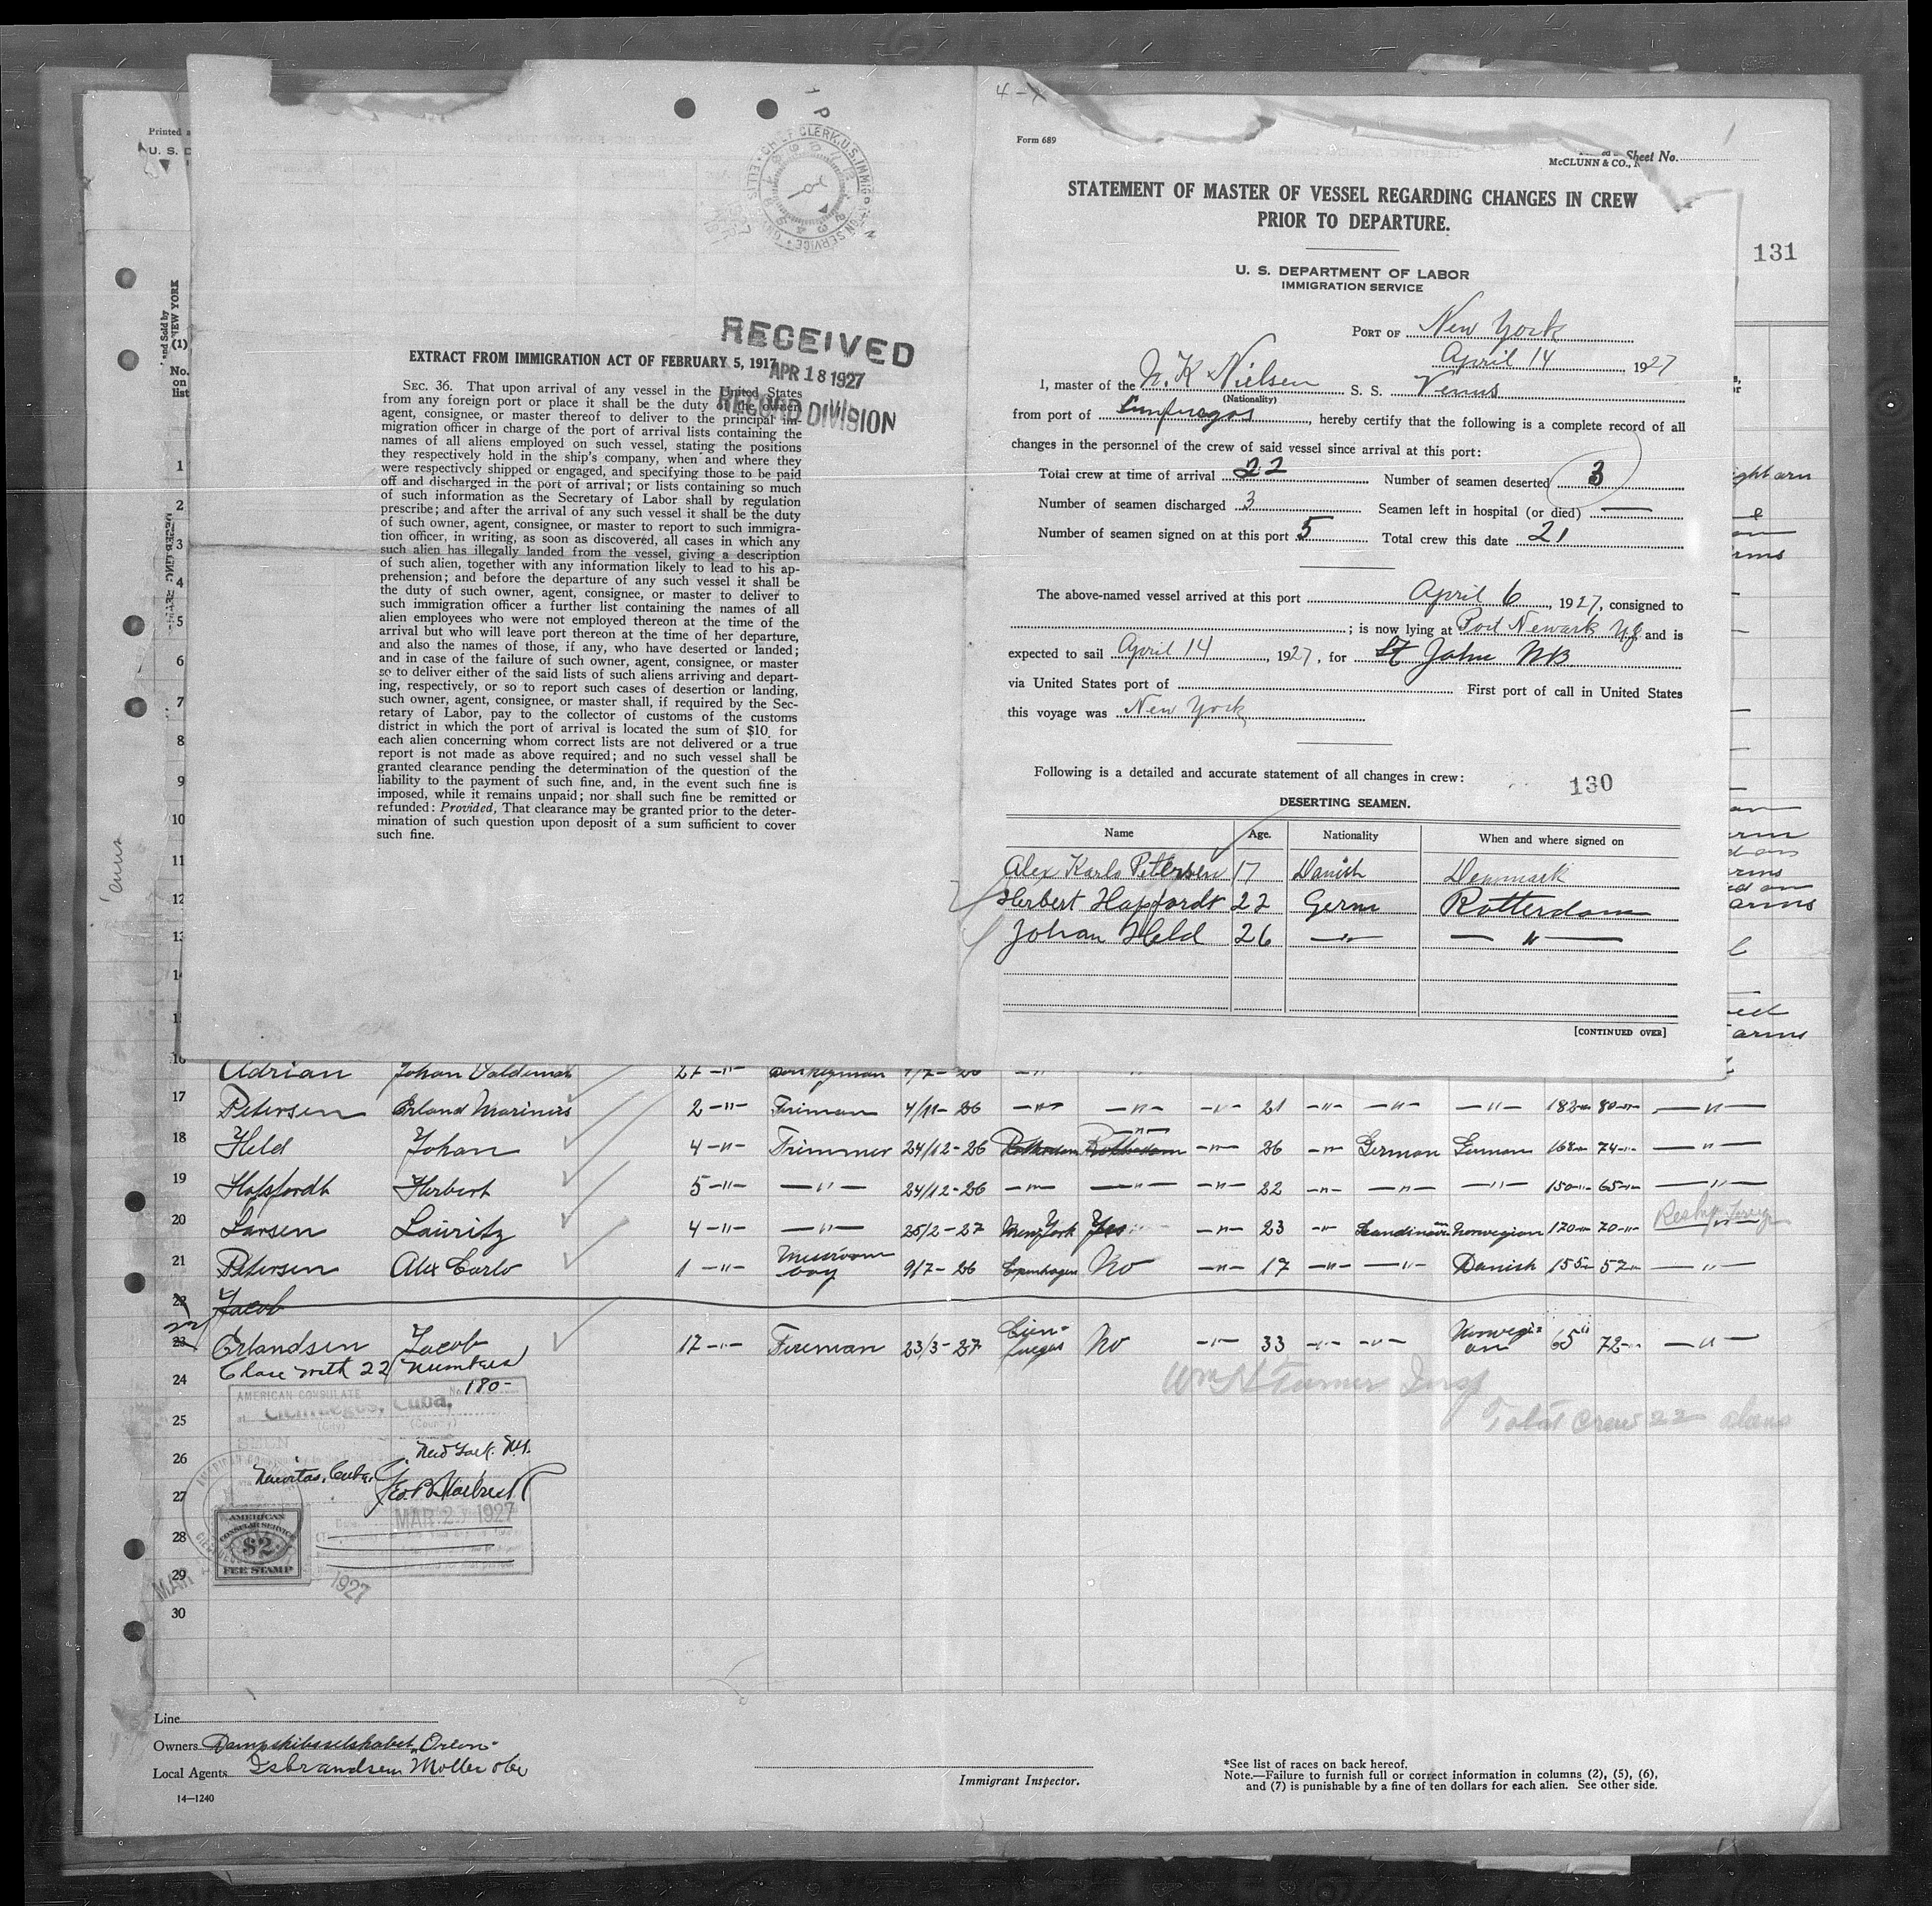 4-X
Form 689
Printed
U. S. D
McCLUNN & CO., N
Sheet No.
STATEMENT OF MASTER OF VESSEL REGARDING CHANGES IN CREW
PRIOR TO DEPARTURE.
U. S. DEPARTMENT OF LABOR
IMMIGRATION SERVICE
131
PORT OF New York
April 14 1927
I, master of the N. K Nielsen S. S. Venus
(Nationality)
from port of, hereby certify that the following is a complete record of all
changes in the personnel of the crew of said vessel since arrival at this port:
Total crew at time of arrival 22 Number of seamen deserted 3
Number of seamen discharged 3 Seamen left in hospital (or died) —
Number of seamen signed on at this port 5 Total crew this date 21
The above-named vessel arrived at this port April 6, 1927, consigned to
; is now lying at Port Newark NJ and is
expected to sail April 14, 1927, for St John NB
via United States port of First port of call in United States
this voyage was New York
Following is a detailed and accurate statement of all changes in crew:
130
DESERTING SEAMEN.
Name Age. Nationality When and where signed on
Alex Karlo Petersen 17 Danish Denmark
Herbert Hapfordt 22 Germ Rotterdam
Johan Held 26 —"— — " —
[CONTINUED OVER]
CHIEF CLERK, U.S. IMMIGRATION SERVICE
RECEIVED
APR 18 1927
RECORD DIVISION
EXTRACT FROM IMMIGRATION ACT OF FEBRUARY 5, 1917
SEC. 36. That upon arrival of any vessel in the United States
from any foreign port or place it shall be the duty of the owner,
agent, consignee, or master thereof to deliver to the principal im-
migration officer in charge of the port of arrival lists containing the
names of all aliens employed on such vessel, stating the positions
they respectively hold in the ship's company, when and where they
were respectively shipped or engaged, and specifying those to be paid
off and discharged in the port of arrival; or lists containing so much
of such information as the Secretary of Labor shall by regulation
prescribe; and after the arrival of any such vessel it shall be the duty
of such owner, agent, consignee, or master to report to such immigra-
tion officer, in writing, as soon as discovered, all cases in which any
such alien has illegally landed from the vessel, giving a description
of such alien, together with any information likely to lead to his ap-
prehension; and before the departure of any such vessel it shall be
the duty of such owner, agent, consignee, or master to deliver to
such immigration officer a further list containing the names of all
alien employees who were not employed thereon at the time of the
arrival but who will leave port thereon at the time of her departure,
and also the names of those, if any, who have deserted or landed;
and in case of the failure of such owner, agent, consignee, or master
so to deliver either of the said lists of such aliens arriving and depart-
ing, respectively, or so to report such cases of desertion or landing,
such owner, agent, consignee, or master shall, if required by the Sec-
retary of Labor, pay to the collector of customs of the customs
district in which the port of arrival is located the sum of $10 for
each alien concerning whom correct lists are not delivered or a true
report is not made as above required; and no such vessel shall be
granted clearance pending the determination of the question of the
liability to the payment of such fine, and, in the event such fine is
imposed, while it remains unpaid; nor shall such fine be remitted or
refunded: Provided, That clearance may be granted prior to the deter-
mination of such question upon deposit of a sum sufficient to cover
such fine.
and Sold by
NEW YORK
(1)
No.
on
list
1
2
3
4
5
6
7
8
9
10
11
12
13
14
16 Adrian Johan Valdemar 27 -"- Donkeyman
17 Petersen Erland Marinus 2 -"- Fireman 4/11-26 -"- -"- -"- 21 -"- -"- -"- 182 80 -"-
18 Held Johan 4 -"- Trimmer 24/12-26 Rotterdam Rotterdam -"- 26 -"- German German 168 74 -"-
19 Hapfordt Herbert 5 -"- -"- 24/12-26 -"- -"- -"- 22 -"- -"- -"- 150 65 -"-
20 Larsen Lauritz 4 -"- -"- 25/2-27 New York Yes -"- 23 -"- Scandinavian Norwegian 170 70
21 Petersen Alex Carlo 1 -"- Messroom boy 9/7-26 Copenhagen No -"- 17 -"- -"- Danish 155 57 -"-
22 Jacob
22 23 Erlandsen Jacob 17 -"- Fireman 23/3-27 Cienfuegos No -"- 33 -"- -"- Norwegian 65 72 -"-
Close with 22 Numbers
24
Wm H Turner Insp
Total Crew 22 aliens
25
26
27
28
29
30
AMERICAN CONSULATE No. 180-
at Cienfuegos, Cuba.
(City) (Country)
SEEN
New York. N.Y.
Nuevitas, Cuba,
MAR 23 1927
AMERICAN
CONSULAR SERVICE
$2
FEE STAMP
MAR
1927
Line
Owners Dampskibsselskabet "Orion"
Local Agents Isbrandsen Moller
14—1240
Immigrant Inspector.
*See list of races on back hereof.
Note.—Failure to furnish full or correct information in columns (2), (5), (6),
and (7) is punishable by a fine of ten dollars for each alien. See other side.